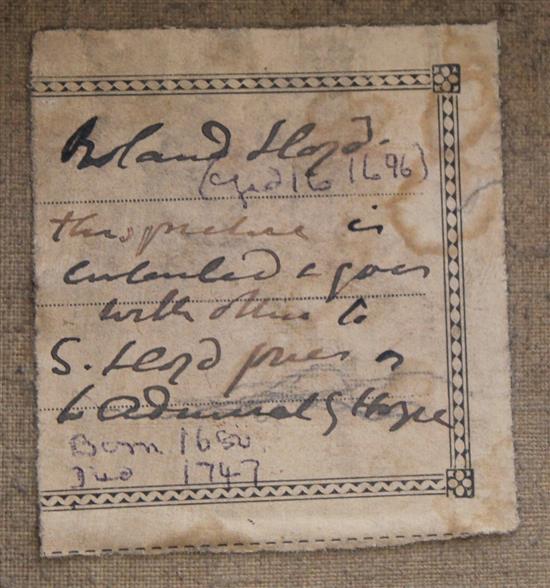 Roland Lloyd.
(aged 16 1696)
this picture is
entailed & goes
with others to
S. Lloyd prices or
to Admiral G Hope
Born 1680
Died 1747